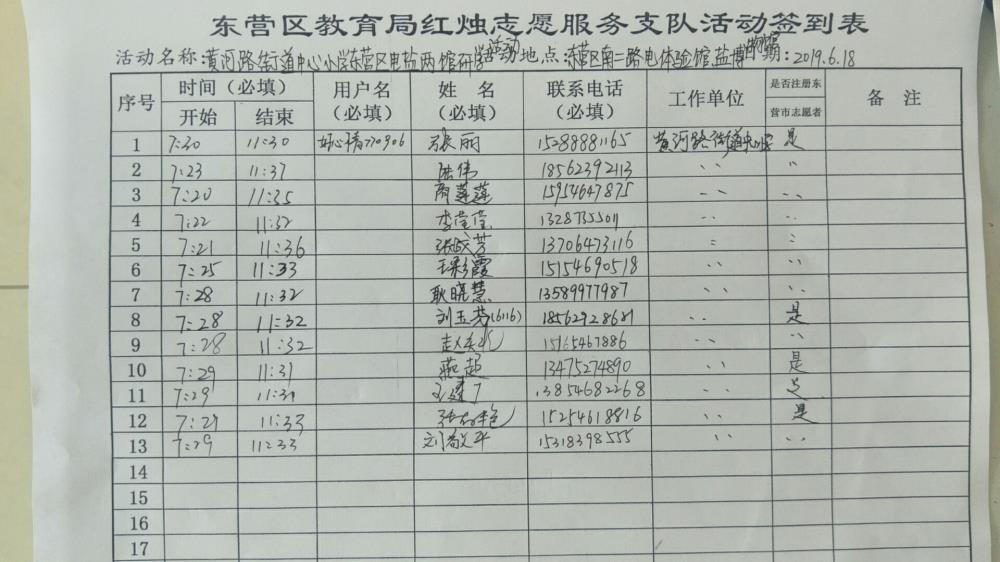 东营区教育局红烛志愿服务支队活动签到表
活动名称:黄河路街道中心小学东营区电盐两馆研学活动 地点:东营区南二路电体验馆,盐博物馆 日期:2019.6.18
序号 时间(必填) 用户名(必填) 姓名(必填) 联系电话(必填) 工作单位 是否注册东营市志愿者 备注
开始 结束
1 7:30 11:30 好心情770906 张丽 15288881165 黄河路街道中心小学 是
2 7:23 11:37 陆伟 18562392113 、、 〃
3 7:20 11:35 商莲莲 15954647875 、、 、、
4 7:22 11:32 李莹莹 13287355011 、、 、、
5 7:21 11:36 张成芳 13706473116 、、 、、
6 7:25 11:33 王彩霞 15154690518 、、 、、
7 7:28 11:32 耿晓慧 13589977987 、、 、、
8 7:28 11:32 刘玉芳(6116) 18562928681 、、 是
9 7:28 11:32 15165467886 、、 、、
10 7:29 11:31 燕超 13475274890 、、 是
11 7:29 11:31 13854682268 、、 是
12 7:29 11:33 15254618816 、、 是
13 7:29 11:33 刘敬平 15318398555 、、 、、
14
15
16
17